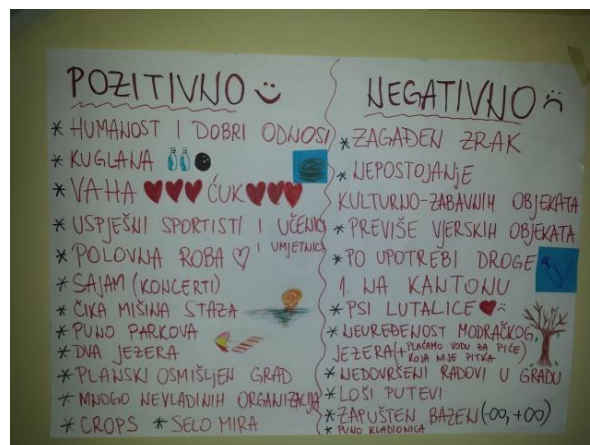 POZITIVNO
* HUMANOST I DOBRI ODNOSI
* KUGLANA
* VAHA ĆUK
* USPJEŠNI SPORTISTI I UČENICI
I UMJETNICI
* POLOVNA ROBA
* SAJAM (KONCERTI)
* ČIKA MIŠINA STAZA
* PUNO PARKOVA
* DVA JEZERA
* PLANSKI OSMIŠLJEN GRAD
* MNOGO NEVLADINIH ORGANIZACIJA
* CROPS * SELO MIRA
NEGATIVNO
* ZAGAĐEN ZRAK
* NEPOSTOJANJE
KULTURNO-ZABAVNIH OBJEKATA
* PREVIŠE VJERSKIH OBJEKATA
* PO UPOTREBI DROGE
1. NA KANTONU
* PSI LUTALICE
* NEUREĐENOST MODRAČKOG
JEZERA (+ PLAĆAMO VODU ZA PIĆE
KOJA NIJE PITKA)
* NEDOVRŠENI RADOVI U GRADU
* LOŠI PUTEVI
* ZAPUŠTEN BAZEN (-∞, +∞)
* PUNO KLADIONICA